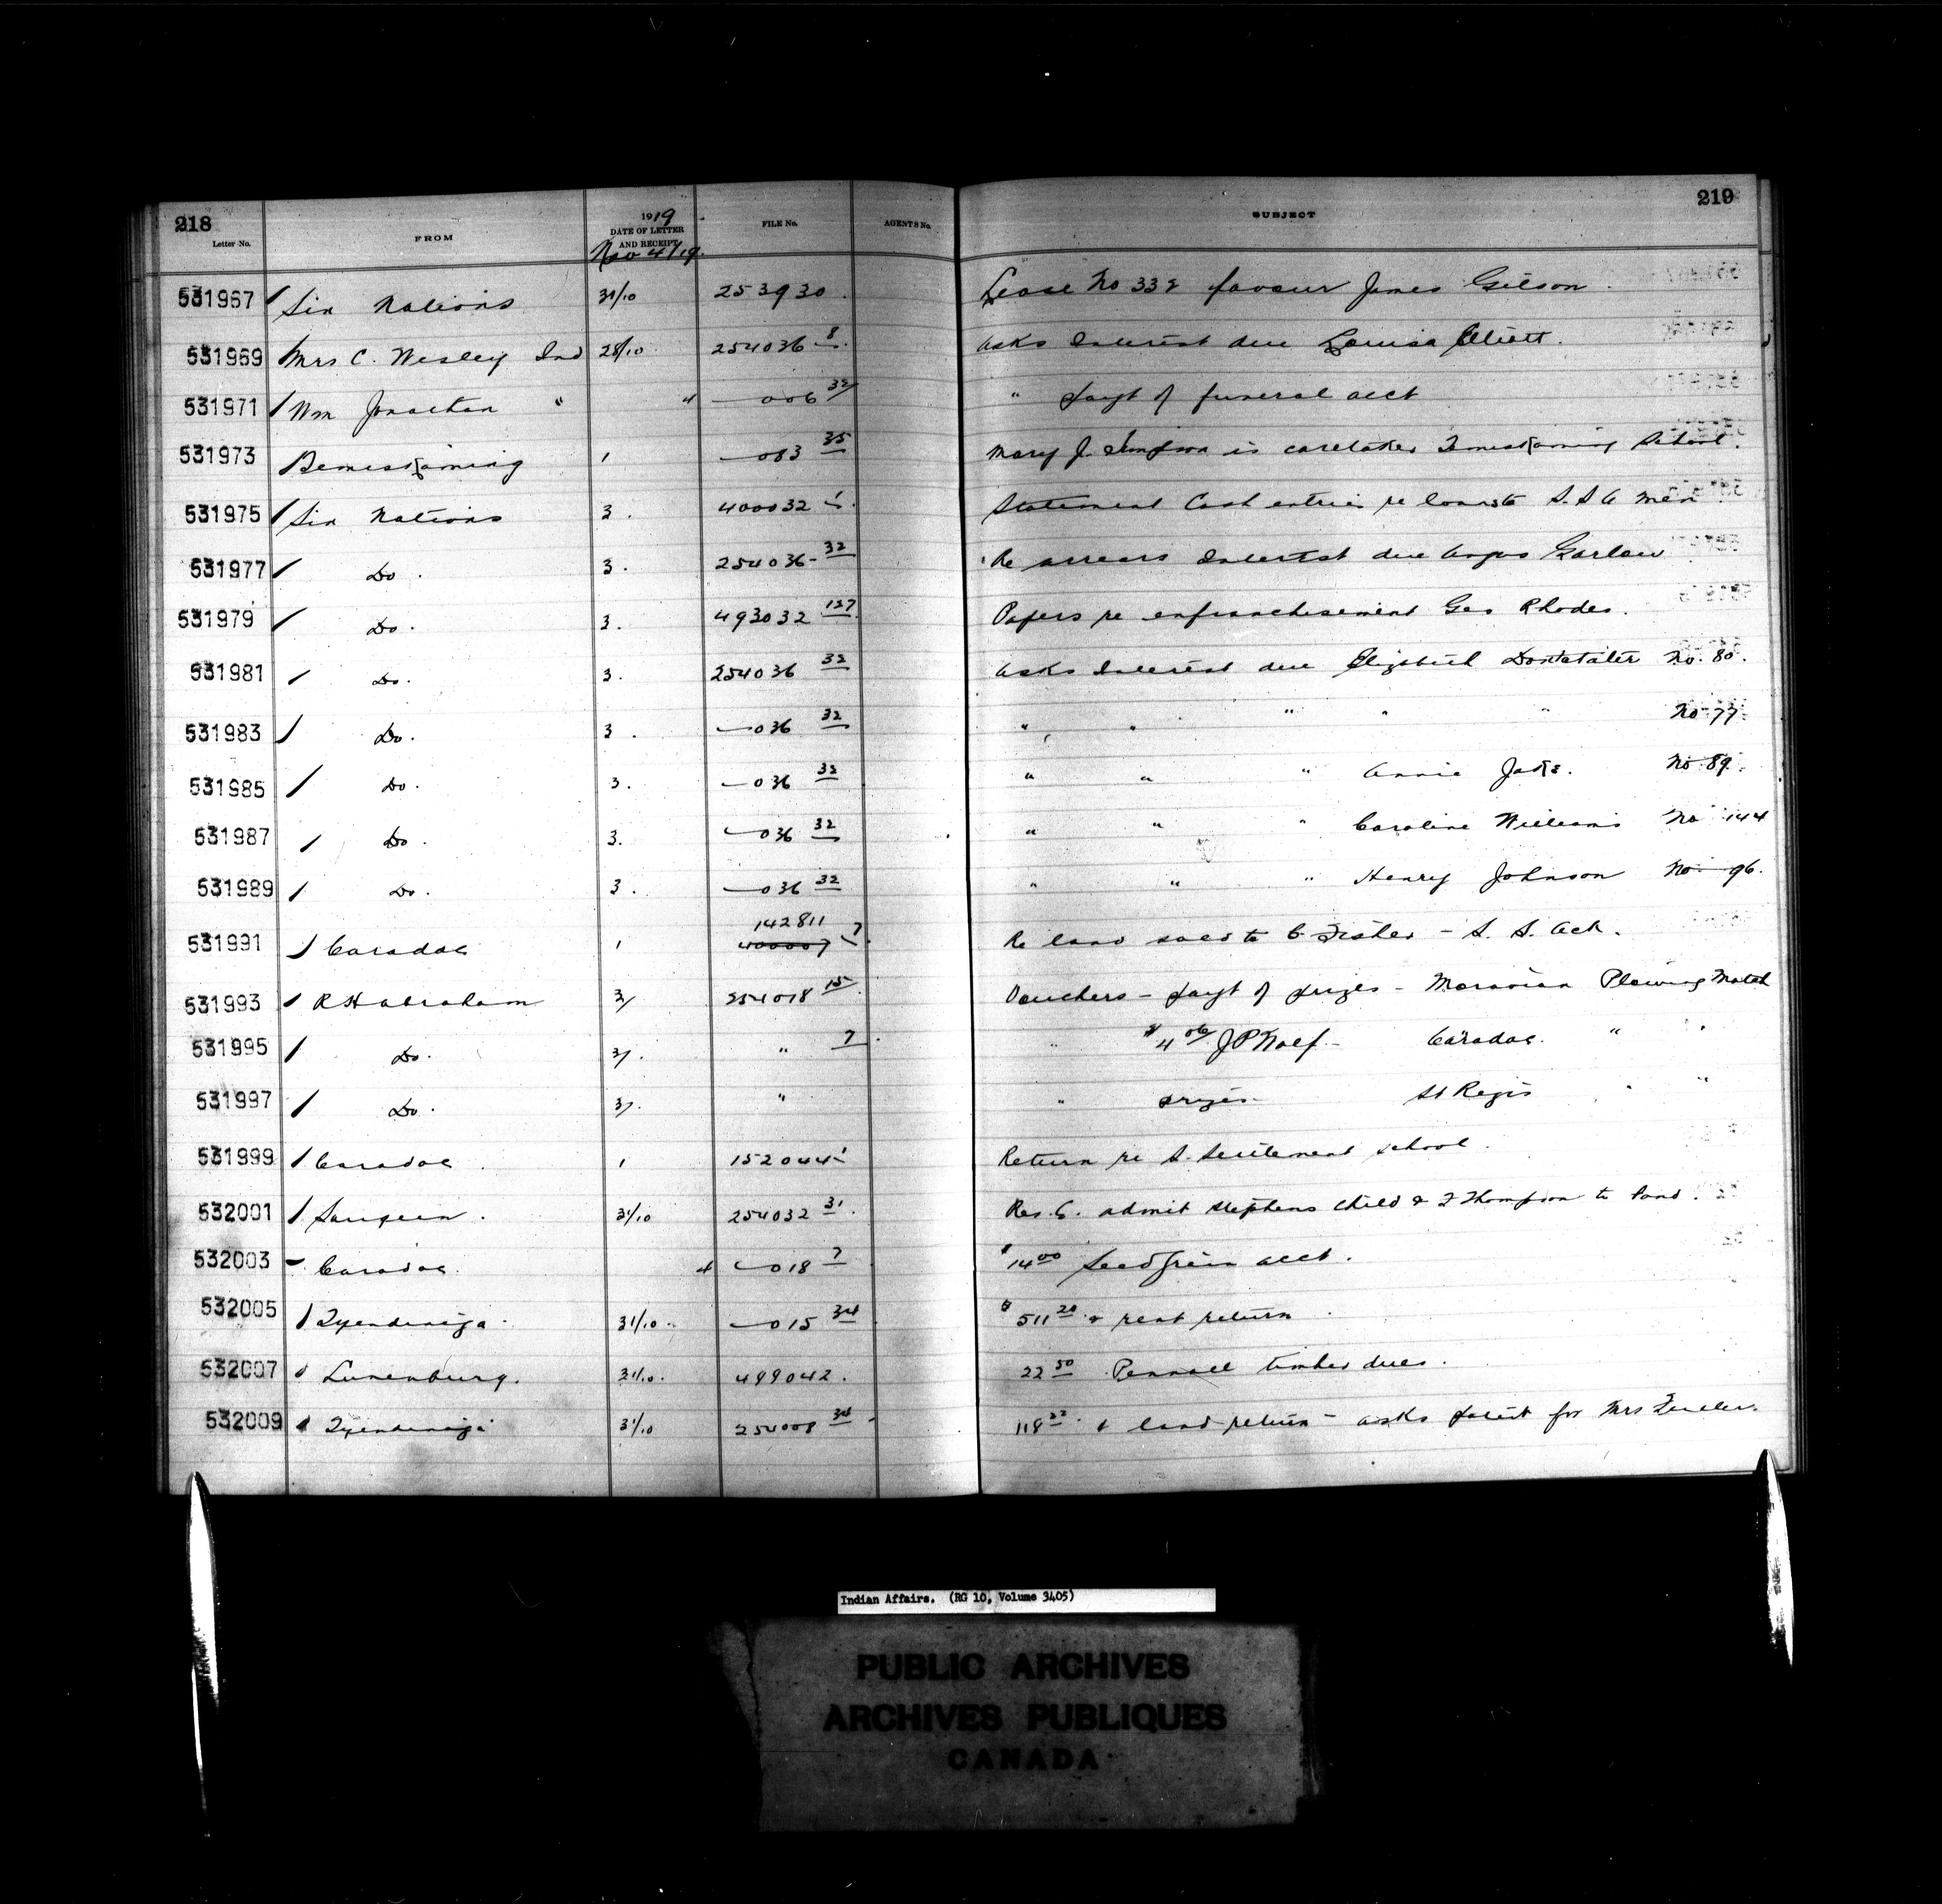 218
219
Letter No. FROM 1919 DATE OF LETTER AND RECEIPT FILE No. AGENTS No. SUBJECT
Nov 4/19.
531967 Six Nations 31/10 253930 Lease No 338 favour James Gilson.
531969 Mrs C. Wesley Ind 28/10 254036 8 asks Interest due Louisa Elliott.
531971 Wm Jonathan " " 006 32 " payt of funeral acct
531973 Temiskaming 1 083 35 Mary J. Simpson is caretaker Temiskaming School.
531975 Six Nations 3. 400032 1 Statement Cash entries re loans to S.S.A men
531977 Do. 3. 254036-32 Re arrears Interest due Angus Garlow
531979 Do. 3. 493032 127 Papers re enfranchisement Geo Rhodes.
531981 Do. 3. 254036 32 asks Interest due Elizabeth Doxtater No. 80.
531983 Do. 3. 036 32 " " " " " No 77
531985 Do. 3. 036 32 " " " Annie No. 89.
531987 Do. 3. 036 32 " " " Caroline Williams No 144
531989 Do. 3. 036 32 " " " Henry Johnson No. 96.
531991 Caradoc 1 142811 400007 7 Re land sold to C. Fisher - S. S. Act.
531993 R H Abraham 3/ 254018 15 Vouchers - payt of prizes - Moravian Plowing Match
531995 Do. 3/. " 7 " $4 06 J P Caradoc. " "
531997 Do. 3/. " " prizes St Regis " "
531999 Caradoc 1 152044 1 Return re S. Settlement school.
532001 Saugeen. 31/10 254032 31. Res. C. admit Stephens child & Thompson to band.
532003 Caradoc 4 018 7 $14 00 Seed Grain acct.
532005 Tyendinaga 31/10 015 34 $511 20 & rent return
532007 Lunenburg. 31/10. 499042. 22 50 Pennall timber dues.
532009 Tyendinaga 31/10 254008 34 118 22 & land return - asks patent for Mrs
Indian Affairs. (RG 10, Volume 3405)
PUBLIC ARCHIVES
ARCHIVES PUBLIQUES
CANADA